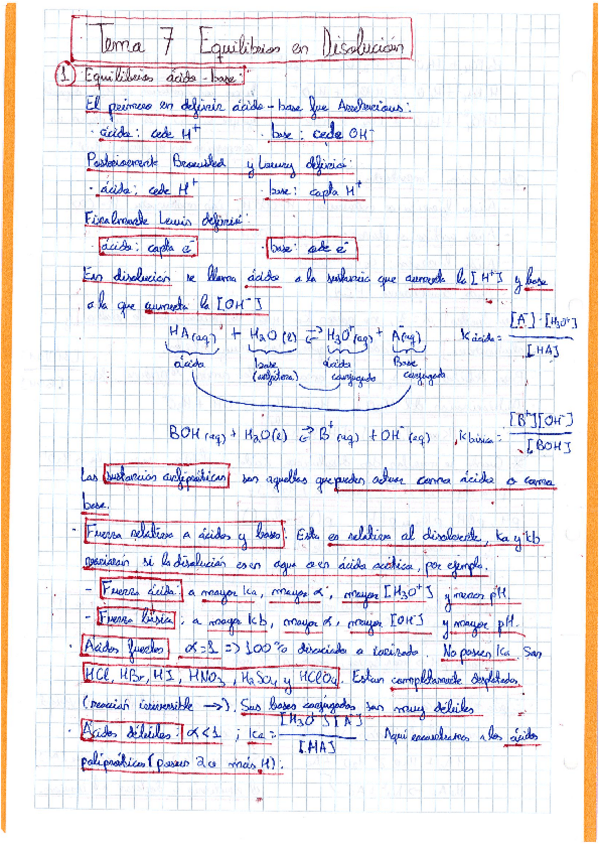 Tema 7 Equilibrios en Disolución
1 Equilibrios ácido-base:
El primero en definir ácido-base fue Arrhenious:
· ácido: cede H⁺ · base: cede OH⁻
Posteriormente Brownsted y Lowry definió:
· ácido: cede H⁺ · base: capta H⁺
Finalmente Lewis definió:
· ácido: capta e⁻ · base: cede e⁻
En disolución se llama ácido a la sustancia que aumenta la [H⁺] y base
a la que aumenta la [OH⁻]
HA(aq) + H₂O(l) ⇌ H₃O⁺(aq) + A⁻(aq) K ácida = [A⁻]·[H₃O⁺] / [HA]
ácido base (anfótera) ácido conjugado Base conjugada
BOH(aq) + H₂O(l) ⇌ B⁺(aq) + OH⁻(aq) , K básica = [B⁺][OH⁻] / [BOH]
Las sustancias anfipróticas son aquellas que pueden actuar como ácido o como
base.
· Fuerza relativa a ácidos y bases: Esta es relativa al disolvente, Ka y Kb
variarán si la disolución es en agua o en ácido acético, por ejemplo.
- Fuerza ácida: a mayor Ka, mayor α, mayor [H₃O⁺] y menor pH.
- Fuerza básica: a mayor Kb, mayor α, mayor [OH⁻] y mayor pH.
· Ácidos fuertes α=1 => 100% disociado o ionizado. No poseen Ka. Son
HCl, HBr, HI, HNO₃, H₂SO₄ y HClO₄. Están completamente desplazados
(reacción irreversible →). Sus bases conjugadas son muy débiles
· Ácidos débiles: α<1 ; Ka = [H₃O⁺][A⁻] / [HA] . Aquí encontramos a los ácidos
polipróticos (poseen 2 o más H).